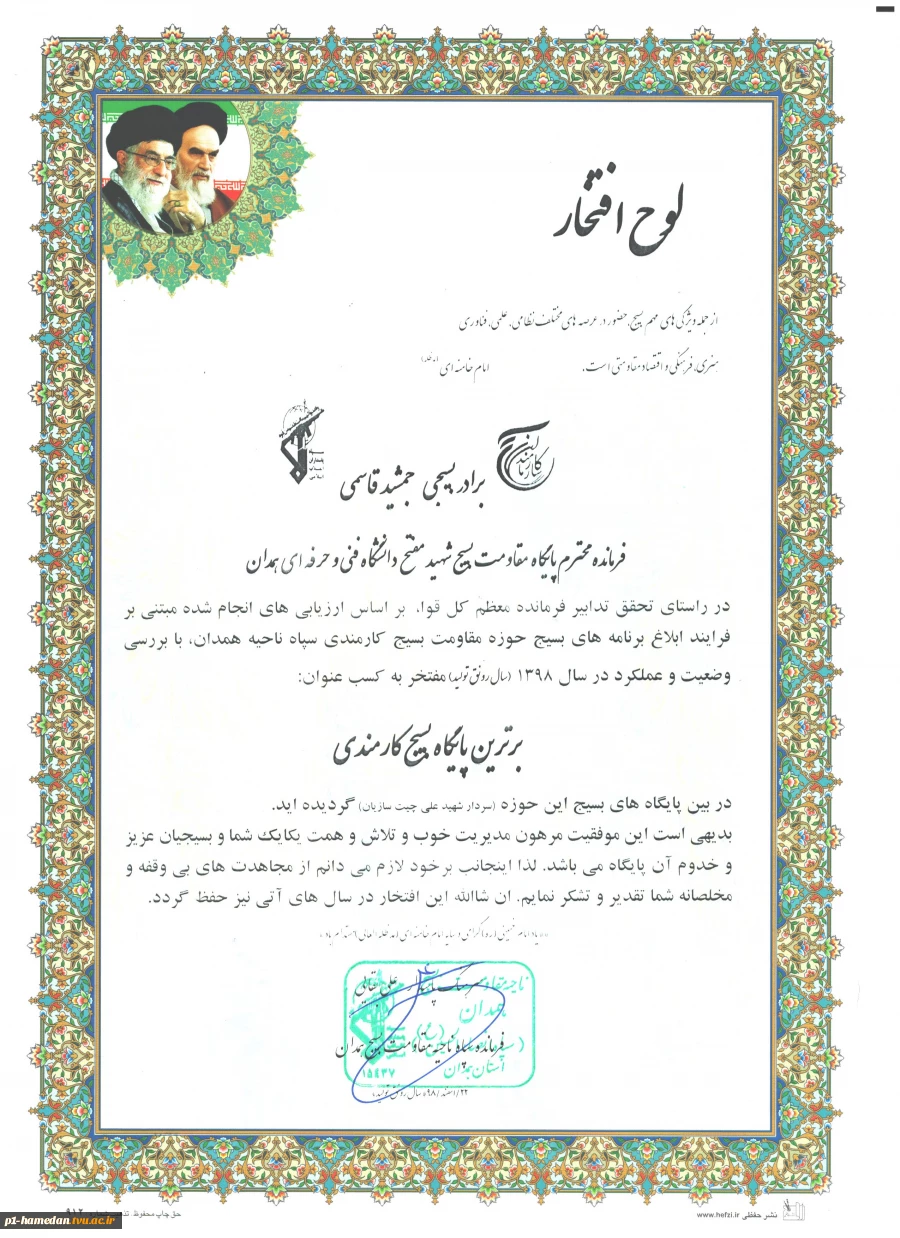 لوح افتخار
از جمله ویژگی های مهم بسیج، حضور در عرصه های مختلف نظامی، علمی، فناوری
هنری، فرهنگی و اقتصاد مقاومتی است.
امام خامنه ای
کارمندان
برادر بسیجی جمشید قاسمی
فرمانده محترم پایگاه مقاومت بسیج شهید مفتح دانشگاه فنی و حرفه ای همدان
در راستای تحقق تدابیر فرمانده معظم کل قوا، بر اساس ارزیابی های انجام شده مبتنی بر
فرایند ابلاغ برنامه های بسیج حوزه مقاومت بسیج کارمندی سپاه ناحیه همدان، با بررسی
وضعیت و عملکرد در سال ۱۳۹۸ (سال رونق تولید) مفتخر به کسب عنوان:
برترین پایگاه بسیج کارمندی
در بین پایگاه های بسیج این حوزه (سردار شهید علی چیت سازیان) گردیده اید.
بدیهی است این موفقیت مرهون مدیریت خوب و تلاش و همت یکایک شما و بسیجیان عزیز
و خدوم آن پایگاه می باشد. لذا اینجانب برخود لازم می دانم از مجاهدت های بی وقفه و
مخلصانه شما تقدیر و تشکر نمایم. ان شاالله این افتخار در سال های آتی نیز حفظ گردد.
ناحیه مقاومت
سرهنگ پاسدار علی بقالی
همدان
فرمانده سپاه ناحیه مقاومت بسیج همدان
استان همدان
۱۵۴۳۷
۲۲/اسفند/۹۸ سال رونق تولید
نشر حفظی www.hefzi.ir
حق چاپ محفوظ
۹۱۲
p1-hamedan.tvu.ac.ir